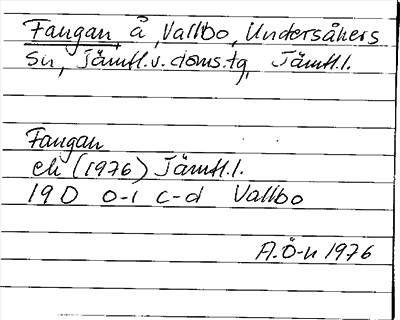 Fangan, å, Vallbo, Undersåkers
Sn, Jämtl.v.doms.tg, Jämtl.l.
Fangan
ek (1976) Jämtl.l.
19 D 0-1 c-d Vallbo
A.Ö-n 1976